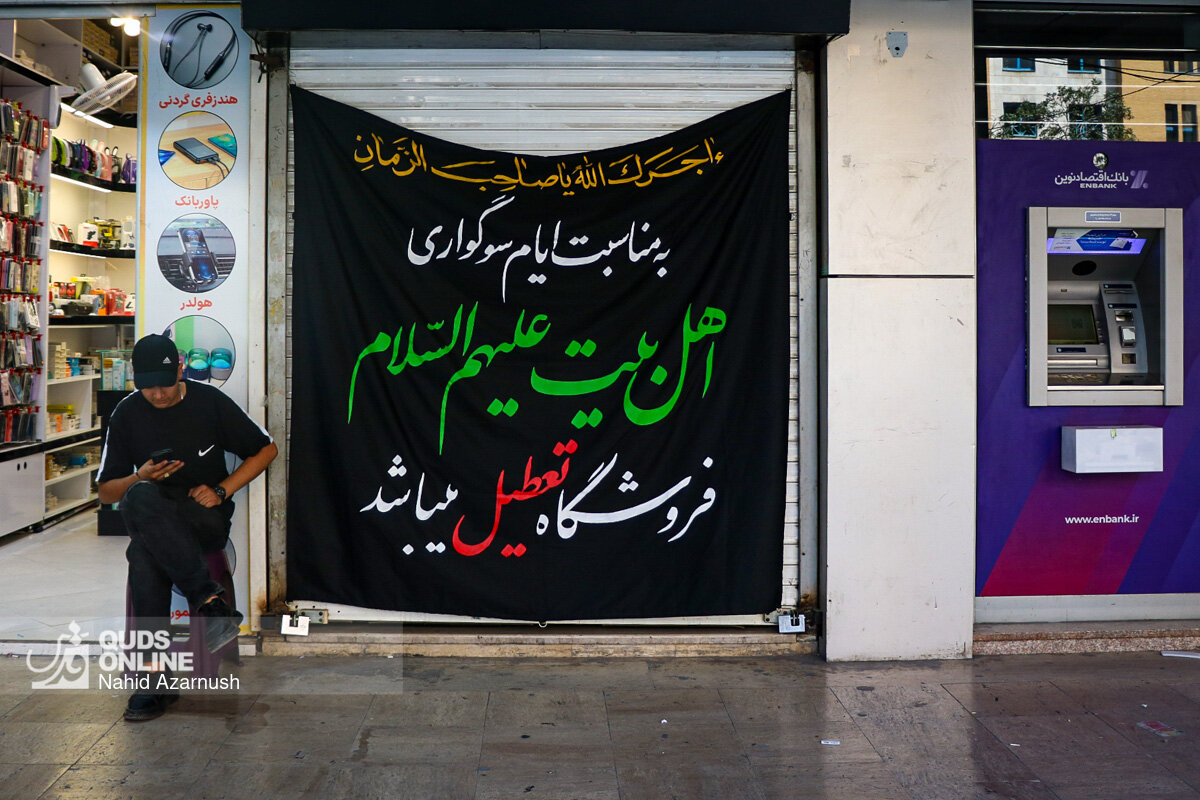 ءاجرک الله یا صاحب الزمان
به مناسبت ایام سوگواری
اهل بیت علیهم السّلام
فروشگاه تعطیل میباشد
هندزفری گردنی
پاوربانک
هولدر
بانک اقتصاد نوین
ENBANK
www.enbank.ir
QUDS-
ONLINE
قدس
Nahid Azarnush